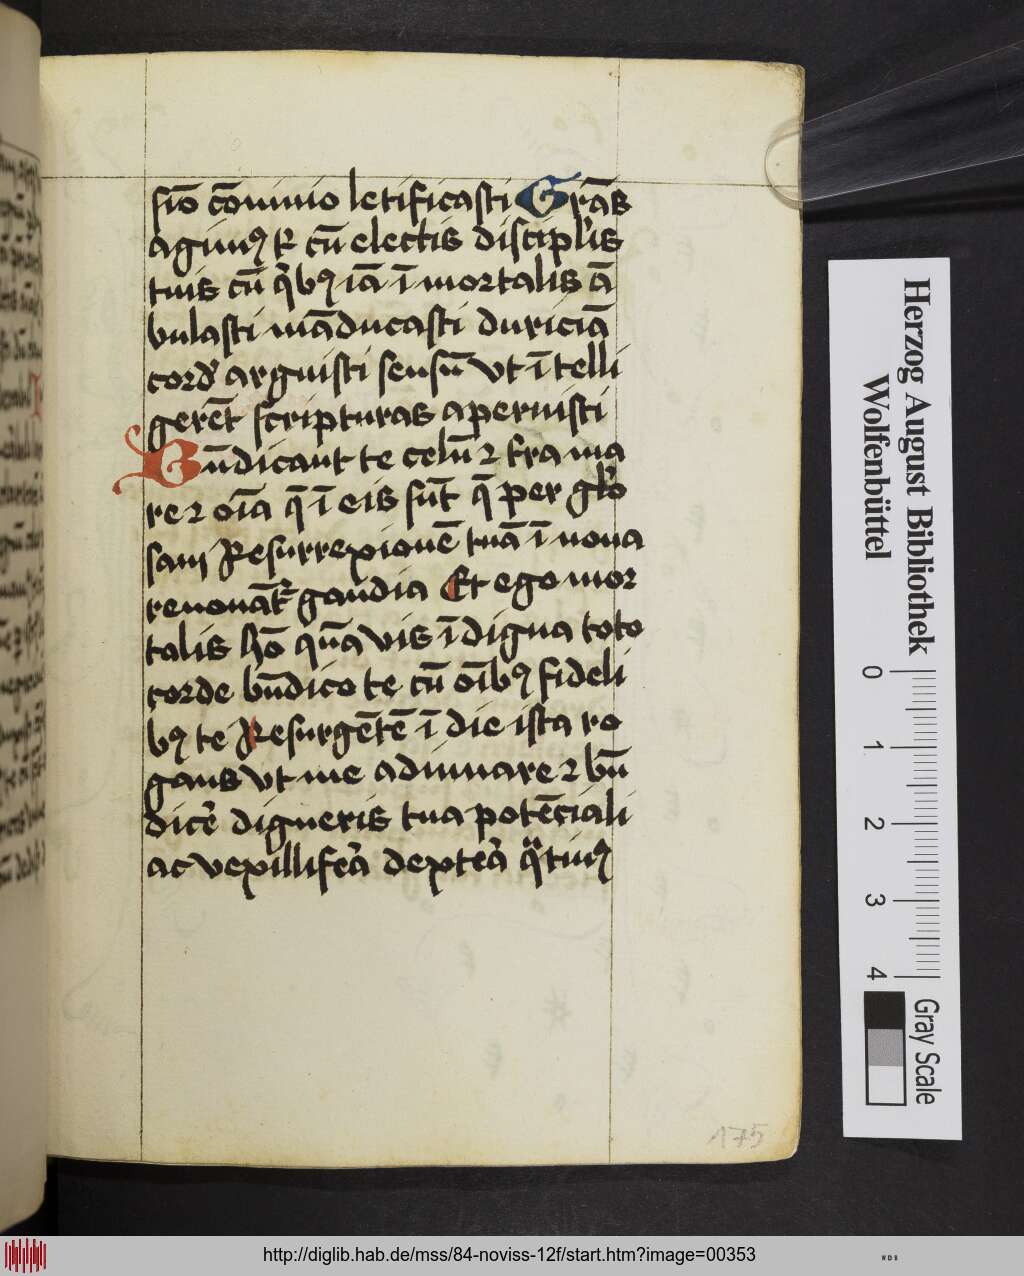 sio᷑ co᷑viuio letificasti Gra᷑s
agimꝰ tꝫ cu᷑ electis discipl'is
tuis cu᷑ q'bꝰ ia᷑ i᷑mortalis a᷑
bulasti ma᷑ducasti duricia᷑
cord' arguisti sensu᷑ vt i᷑telli
gere᷑t scripturas aperuisti
Bn᷑dicant te celu᷑ ⁊ t'ra ma
re ⁊ oi᷑a q᷑ i᷑ eis su᷑t q᷑ per gl'o
sam Resurrexione᷑ tua᷑ i᷑ noua
renouat᷑ꝛ gaudia Et ego mor
talis ho᷑ qua᷑vis i᷑digna toto
corde bn᷑dico te cu᷑ oi᷑bꝰ fideli
bꝰ te Resurge᷑te᷑ i᷑ die ista ro
gans vt me adiuuare ⁊ bn᷑
dice' digneris tua pote᷑ciali
ac vexillife'a dexte'a qᷓtinꝰ
175
Herzog August Bibliothek
Wolfenbüttel
0 1 2 3 4
Gray Scale
http://diglib.hab.de/mss/84-noviss-12f/start.htm?image=00353